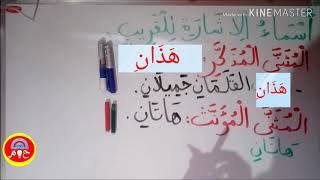 Made with KINEMASTER
أَسْمَاءُ الإِشَارَةِ لِلْقَرِيبِ
الْمُثَنَّى الْمُذَكَّرُ: هَذَانِ
- هَذَانِ الْقَلَمَانِ جَمِيلَانِ.
الْمُثَنَّى الْمُؤَنَّثُ: هَاتَانِ.
هَاتَانِ